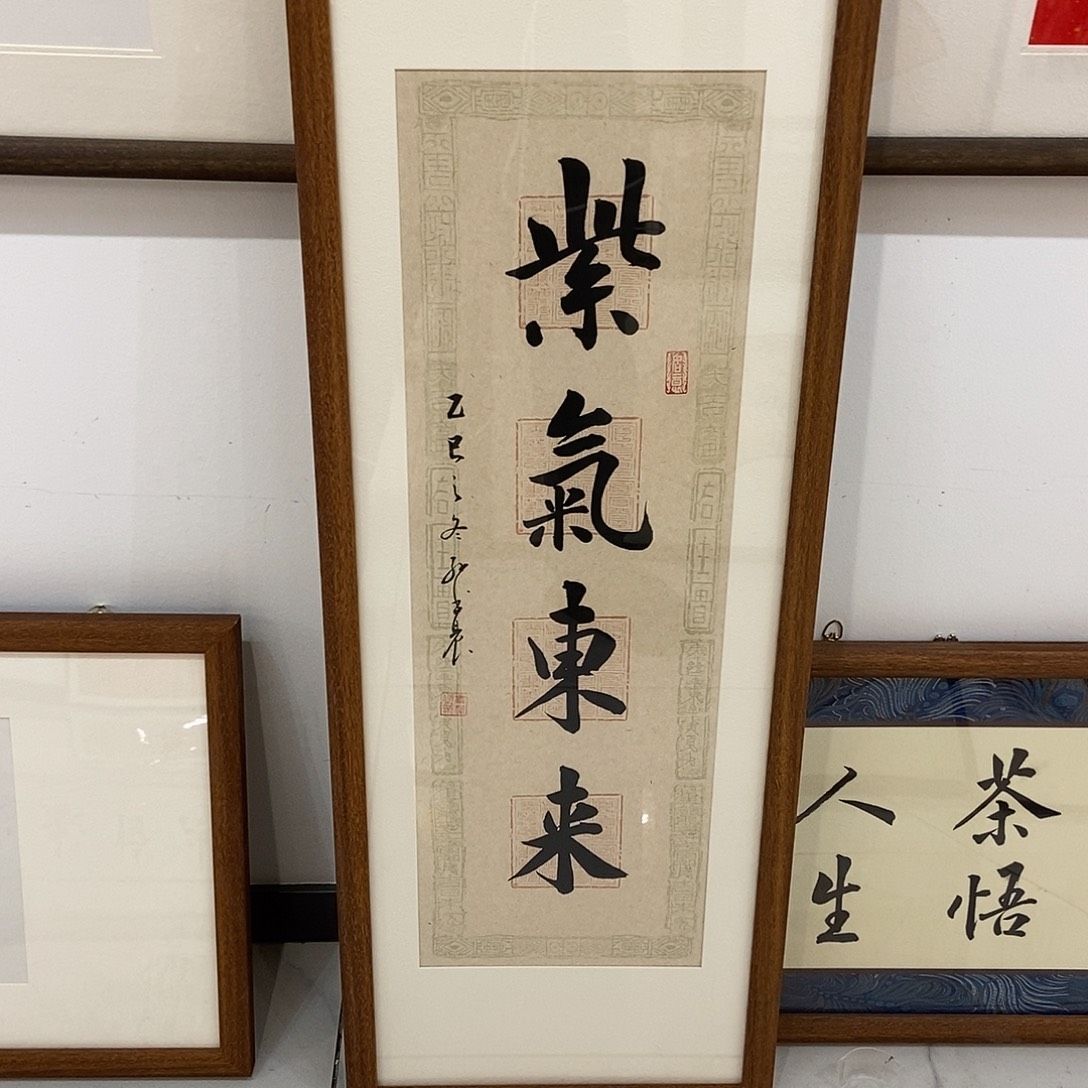 紫氣東来
乙巳之冬
茶悟
人生